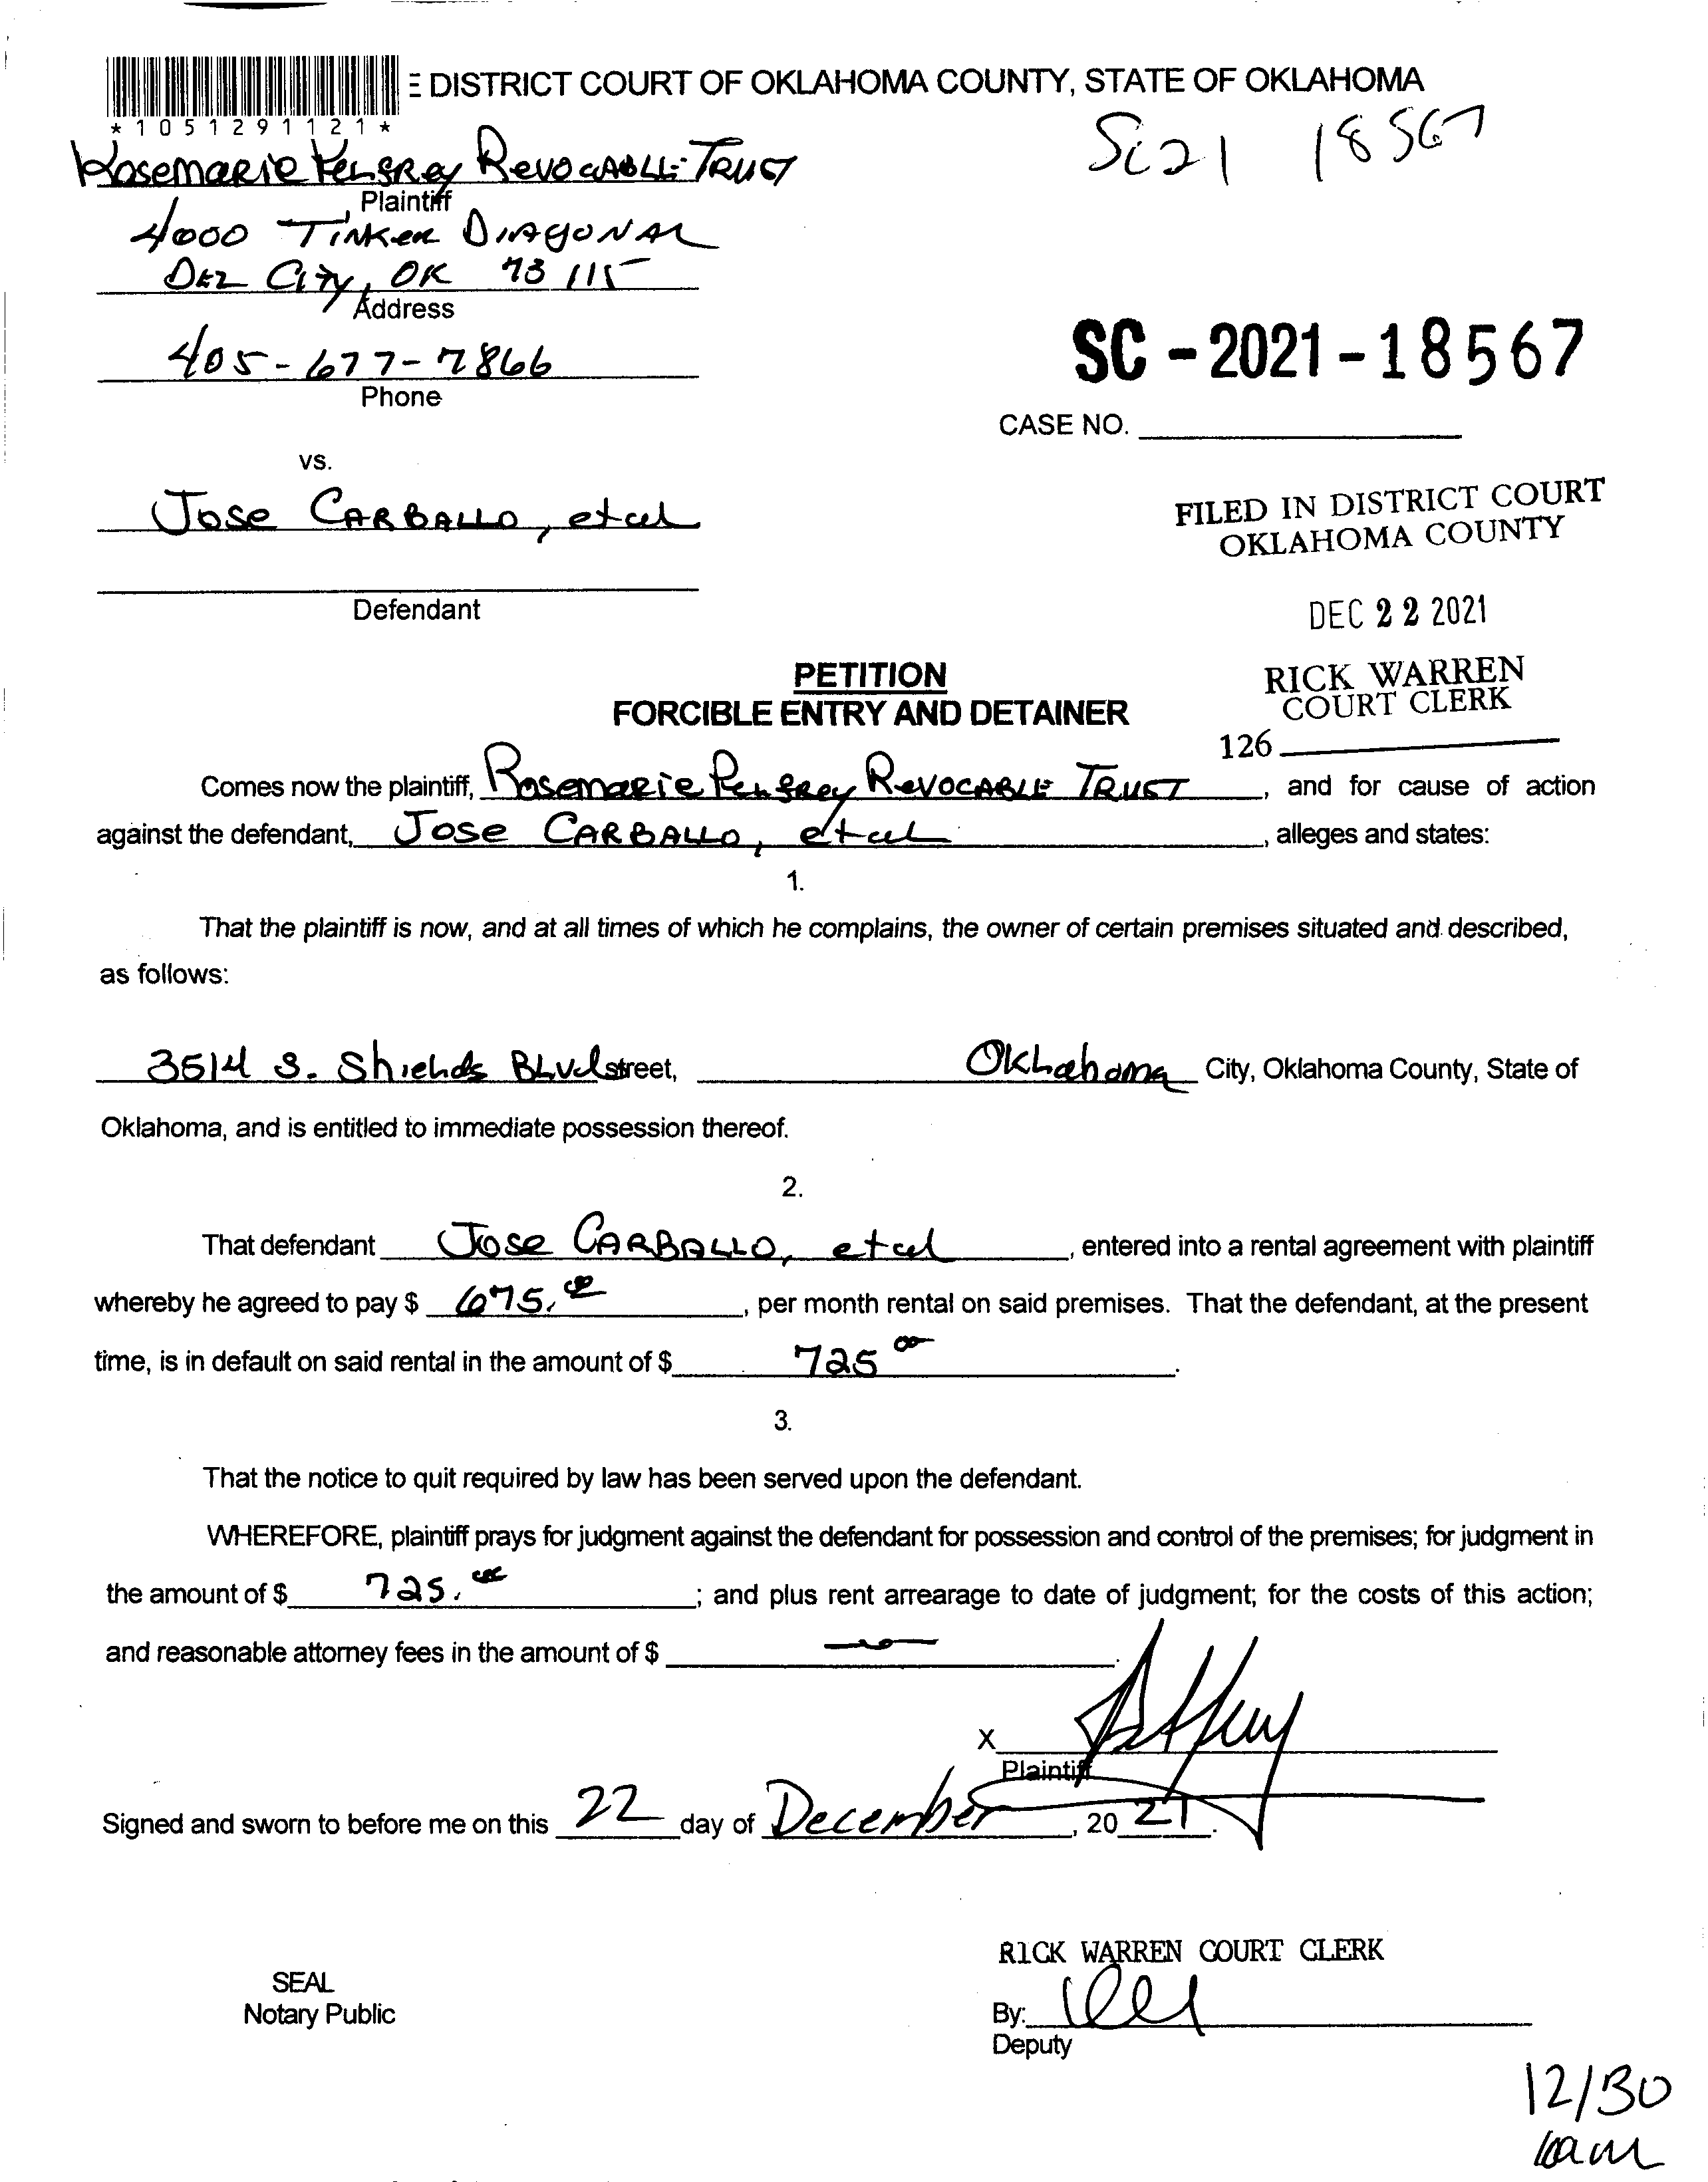 DISTRICT COURT OF OKLAHOMA COUNTY, STATE OF OKLAHOMA
*1051291121*
SC21 18567
Rosemarie Pengrey REVOCABLE TRUST
Plaintiff
4000 TINKER DIAGONAL
DEL CITY, OK 73115
Address
405-677-7866
Phone
SC-2021-18567
CASE NO.
vs.
JOSE CARBALLO, et al
FILED IN DISTRICT COURT
OKLAHOMA COUNTY
Defendant
DEC 22 2021
PETITION
FORCIBLE ENTRY AND DETAINER
RICK WARREN
COURT CLERK
126
Comes now the plaintiff, Rosemarie Pengrey REVOCABLE TRUST, and for cause of action
against the defendant, JOSE CARBALLO, et al, alleges and states:
1.
That the plaintiff is now, and at all times of which he complains, the owner of certain premises situated and described,
as follows:
3514 S. Shields BLvd street, Oklahoma City, Oklahoma County, State of
Oklahoma, and is entitled to immediate possession thereof.
2.
That defendant JOSE CARBALLO, et al, entered into a rental agreement with plaintiff
whereby he agreed to pay $ 675.00, per month rental on said premises. That the defendant, at the present
time, is in default on said rental in the amount of $ 725 00.
3.
That the notice to quit required by law has been served upon the defendant.
WHEREFORE, plaintiff prays for judgment against the defendant for possession and control of the premises; for judgment in
the amount of $ 725.00; and plus rent arrearage to date of judgment; for the costs of this action;
and reasonable attorney fees in the amount of $ -0-.
X
Plaintiff
Signed and sworn to before me on this 22 day of December, 20 21.
RICK WARREN COURT CLERK
SEAL
Notary Public
By:
Deputy
12/30